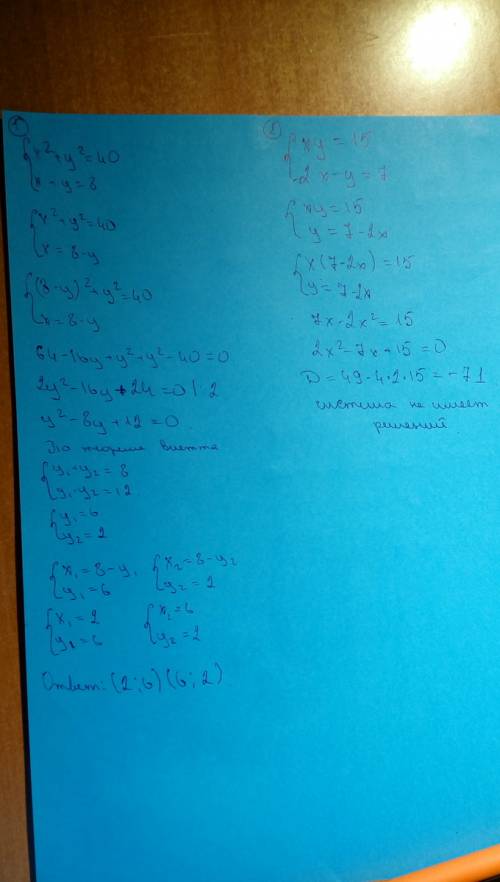 1
{x²+y²=40
x-y=8
{x²+y²=40
x=8-y
{(8-y)²+y²=40
x=8-y
64-16y+y²+y²-40=0
2y²-16y+24=0 |:2
y²-8y+12=0
По теореме Виетта
{y₁+y₂=8
y₁·y₂=12
{y₁=6
y₂=2
{x₁=8-y₁ {x₂=8-y₂
y₁=6 y₂=2
{x₁=2 {x₂=6
y₁=6 y₂=2
Ответ: (2;6) (6;2)
{xy=15
2x-y=7
{xy=15
y=7-2x
{x(7-2x)=15
y=7-2x
7x-2x²=15
2x²-7x+15=0
D=49-4·2·15=-71
система не имеет
решений